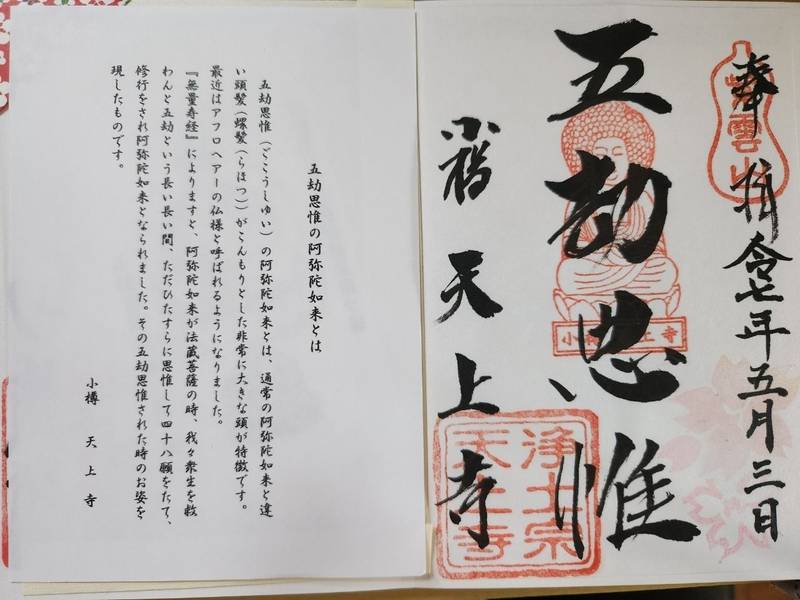 奉拝 令和七年五月三日
五劫思惟
小樽 天上寺
紫雲山
小樽天上寺
浄土宗
天上寺
五劫思惟の阿弥陀如来とは
五劫思惟(ごこうしゆい)の阿弥陀如来とは、通常の阿弥陀如来と違
い頭髪(螺髪(らほつ))がこんもりとした非常に大きな頭が特徴です。
最近はアフロヘアーの仏様と呼ばれるようになりました。
『無量寿経』によりますと、阿弥陀如来が法蔵菩薩の時、我々衆生を救
わんと五劫という長い長い間、ただひたすらに思惟して四十八願をたて、
修行をされ阿弥陀如来となられました。その五劫思惟された時のお姿を
現したものです。
小樽 天上寺